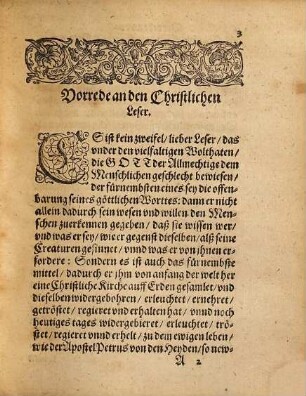 3
Vorrede an den Christlichen
Leser.
ES ist kein zweifel / lieber Leser / das
vnder den vielfaltigen Wolthaten /
die GOTT der Allmechtige dem
Menschlichen geschlecht bewiesen /
der fürnembsten eines sey die offen-
barung seines göttlichen Worttes: dann er nicht
allein dadurch sein wesen vnd willen den Men-
schen zuerkennen gegeben / daß sie wissen wer
vnd was er sey / wie er gegen sie dieselben / alß seine
Creaturen gesinnet / vnnd was er von ihnen er-
fordere: Sondern es ist auch das fürnembste
mittel / dadurch er jhm von anfang der welt her
eine Christliche Kirche auff Erden gesamlet / vnd
dieselben widergebohren / erleuchtet / ernehret /
getröstet / regieret vnd erhalten hat / vnnd noch
heutiges tages widergebieret / erleuchtet / trö-
stet / regieret vnnd erhelt / zu dem ewigen leben /
wie der Apostel Petrus von den Heyden / so new-
A 2